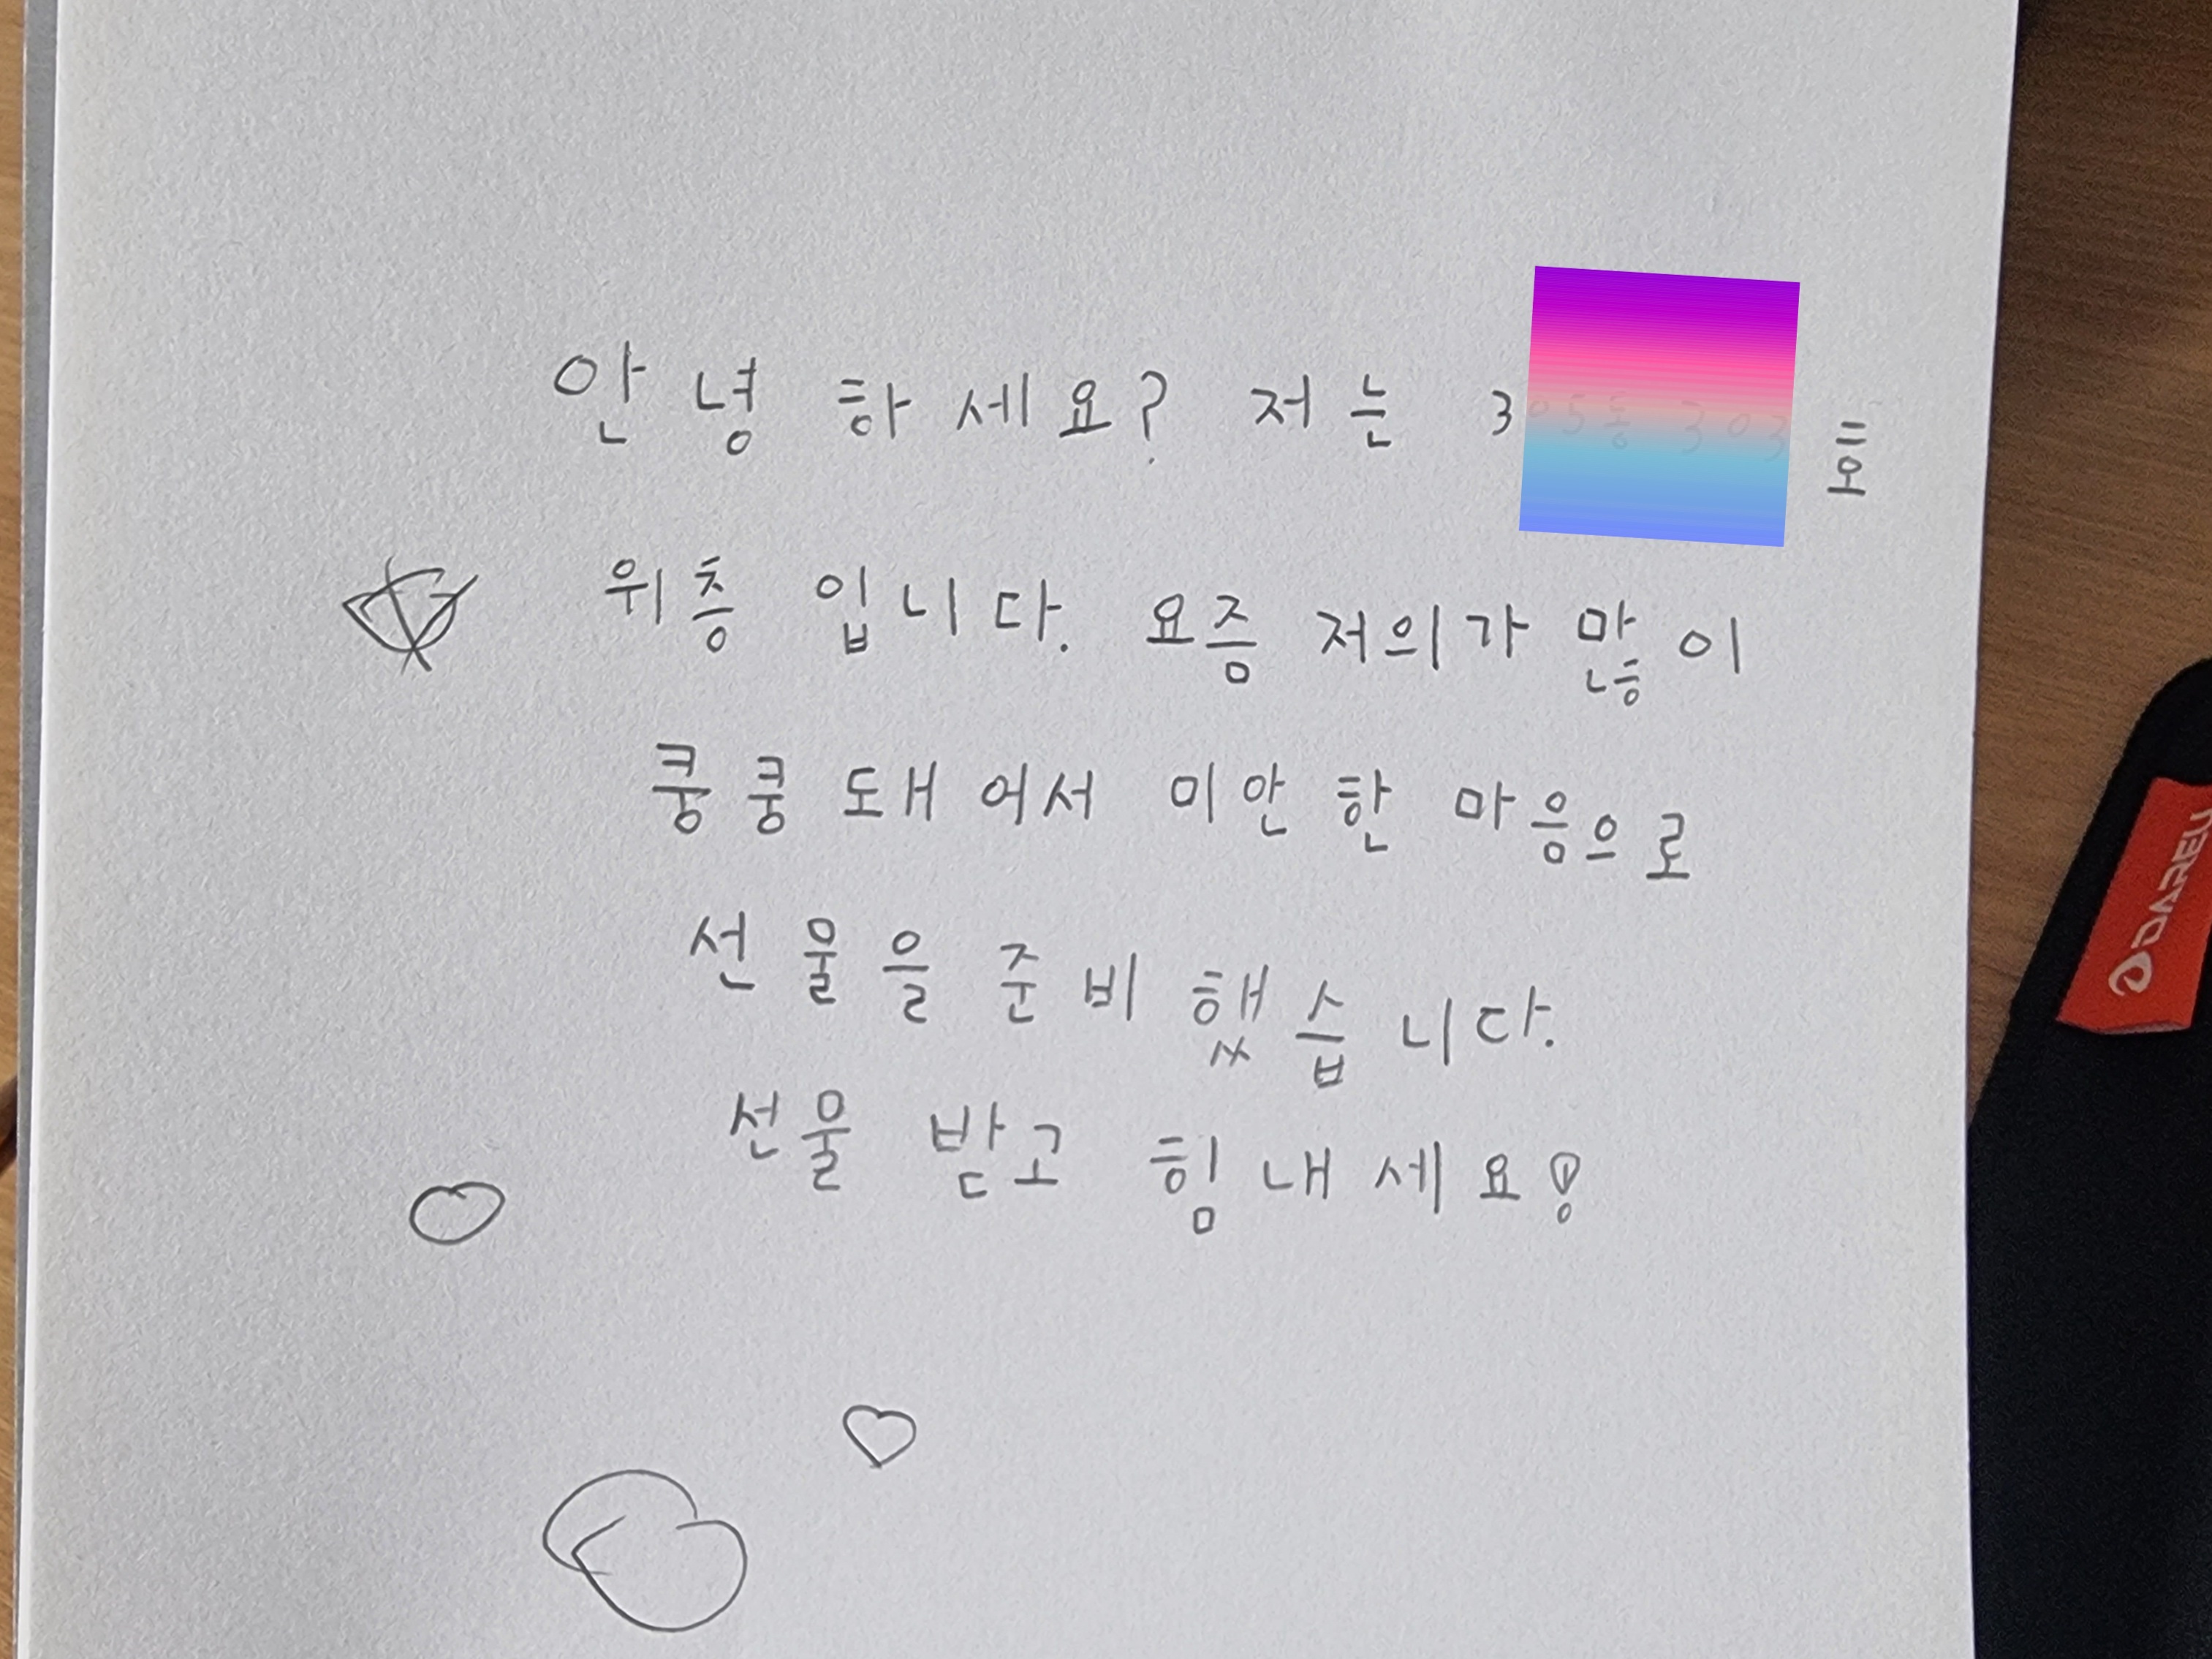 안녕하세요? 저는 3 호
위층 입니다. 요즘 저의가 많이
쿵쿵돼어서 미안한 마음으로
선물을 준비했습니다.
선물 받고 힘내세요!
DAREU